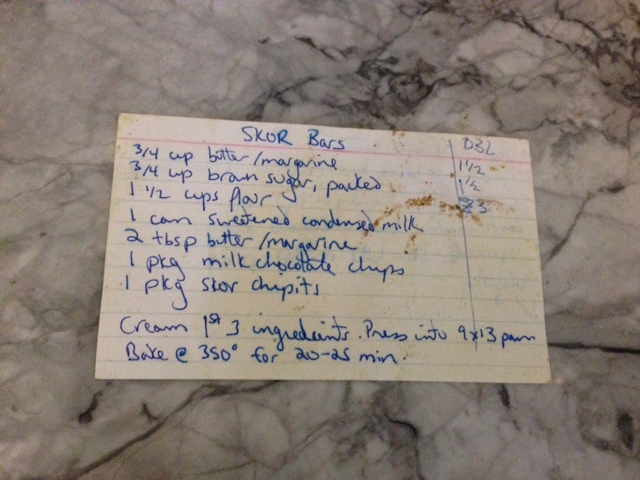 SKOR Bars
DBL
3/4 cup butter/margarine 1 1/2
3/4 cup brown sugar, packed 1 1/2
1 1/2 cups flour 3
1 can sweetened condensed milk
2 tbsp butter/margarine
1 pkg milk chocolate chips
1 pkg skor chipits
Cream 1st 3 ingredients. Press into 9x13 pan
Bake @ 350° for 20-25 min.